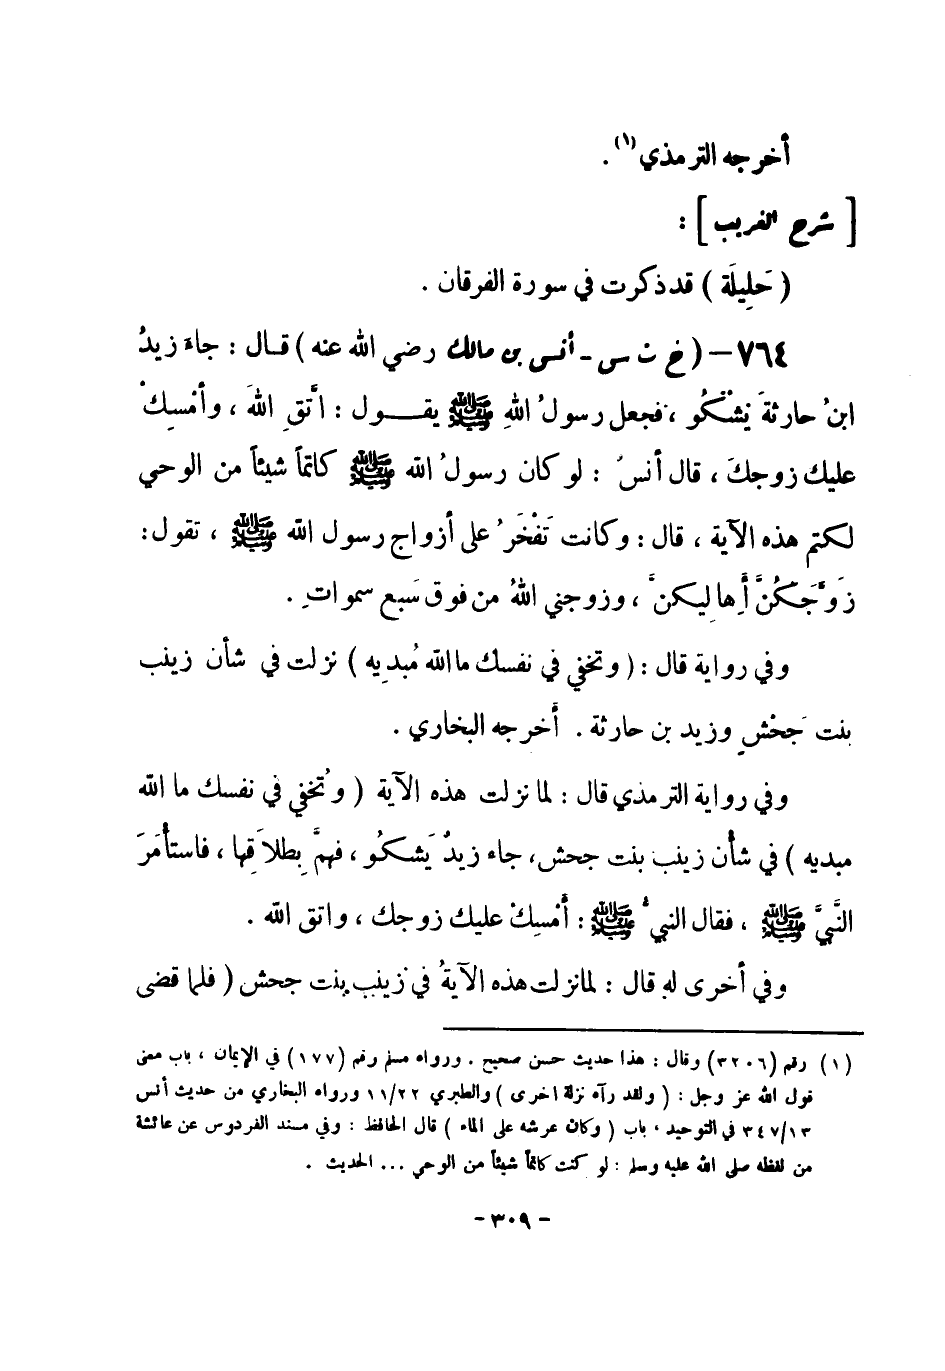 أخرجه الترمذي(١) .
[ شرح الغريب ] :
( حَلِيلَة ) قد ذكرت في سورة الفرقان .
٧٦٤ – ( خ ت س - أنس بن مالك رضي الله عنه ) قال : جاءَ زيدُ
ابنُ حارثةَ يَشْكُو ، فجعل رسولُ اللهِ ﷺ يقـــول : اتَّقِ اللهَ ، وأمْسِكْ
عليك زوجكَ ، قال أنسٌ : لو كان رسولُ الله ﷺ كاتماً شيئاً من الوحي
لكتم هذه الآية ، قال : وكانت تَفْخَرُ على أزواج رسول الله ﷺ ، تقول :
زَوَّجَكُنَّ أَهاليكنَّ ، وزوجني اللهُ من فوق سَبع سمواتٍ .
وفي رواية قال : ( وتخفي في نفسك ما الله مُبديه ) نزلت في شأن زينب
بنت جَحْشٍ وزيد بن حارثة . أخرجه البخاري .
وفي رواية الترمذي قال : لما نزلت هذه الآية ( وتُخفي في نفسك ما الله
مبديه ) في شأن زينب بنت جحش ، جاء زيدٌ يَشكُو ، فهمَّ بِطلاقِها ، فاستأمَرَ
النَّبيَّ ﷺ ، فقال النبيُّ ﷺ : أَمْسِكْ عليك زوجك ، واتق الله .
وفي أخرى له قال : لما نزلت هذه الآيةُ في زينب بنت جحش ( فلما قضى
(١) رقم (٣٢٠٦) وقال : هذا حديث حسن صحيح . ورواه مسلم رقم (١٧٧) في الإيمان ، باب معنى
قول الله عز وجل : ( ولقد رآه نزلة اخرى ) والطبري ١١/٢٢ ورواه البخاري من حديث أنس
٣٤٧/١٣ في التوحيد ، باب ( وكان عرشه على الماء ) قال الحافظ : وفي مسند الفردوس عن عائشة
من لفظه صلى الله عليه وسلم : لو كنت كاتماً شيئاً من الوحي ... الحديث .
- ٣٠٩ -